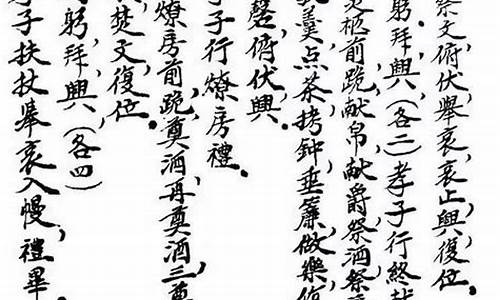 祭文俯伏，舉哀，哀止，興，復位。
躬，拜，興，（各二）孝子行終
灵柩前跪，献帛，献爵，祭酒，祭
羹，点茶，拷钟，垂簾，做樂，侑
罄，俯伏興。
子行燎房禮。
燎房前跪，奠酒，再奠酒，三奠
焚文，復位。
躬，拜，興，（各四）
子扶杖舉哀入幔，禮畢。